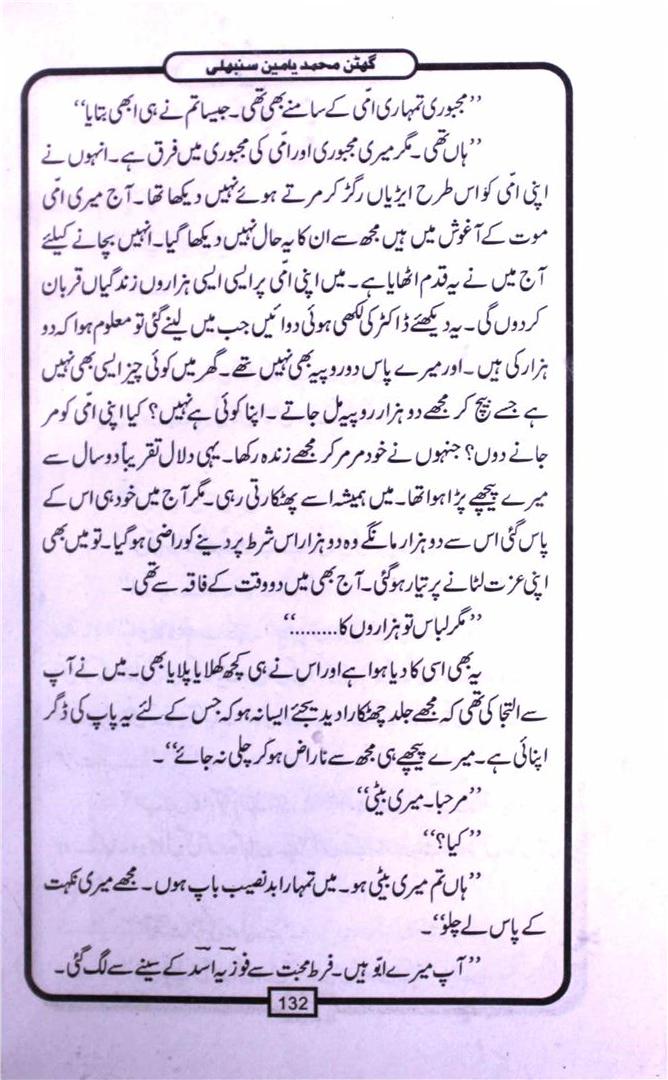 گھٹن محمد یامین سنبھلی
’’مجبوری تمہاری امّی کے سامنے بھی تھی۔ جیسا تم نے ہی ابھی بتایا‘‘
’’ہاں تھی۔ مگر میری مجبوری اور امّی کی مجبوری میں فرق ہے۔ انہوں نے
اپنی امّی کو اس طرح ایڑیاں رگڑ کر مرتے ہوئے نہیں دیکھا تھا۔ آج میری امّی
موت کے آغوش میں ہیں مجھ سے ان کا یہ حال نہیں دیکھا گیا۔ انہیں بچانے کیلئے
آج میں نے یہ قدم اٹھایا ہے۔ میں اپنی امّی پر ایسی ایسی ہزاروں زندگیاں قربان
کردوں گی۔ یہ دیکھئے ڈاکٹر کی لکھی ہوئی دوائیں جب میں لینے گئی تو معلوم ہوا کہ دو
ہزار کی ہیں۔ اور میرے پاس دو روپیہ بھی نہیں تھے۔ گھر میں کوئی چیز ایسی بھی نہیں
ہے جسے بیچ کر مجھے دو ہزار روپیہ مل جاتے۔ اپنا کوئی ہے نہیں؟ کیا اپنی امّی کو مر
جانے دوں؟ جنہوں نے خود مر مر کر مجھے زندہ رکھا۔ یہی دلال تقریباً دو سال سے
میرے پیچھے پڑا ہوا تھا۔ میں ہمیشہ اسے پھٹکارتی رہی۔ مگر آج میں خود ہی اس کے
پاس گئی اس سے دو ہزار مانگے وہ دو ہزار اس شرط پر دینے کو راضی ہوگیا۔ تو میں بھی
اپنی عزت لٹانے پر تیار ہوگئی۔ آج بھی میں دو وقت کے فاقہ سے تھی۔
’’مگر لباس تو ہزاروں کا........‘‘
یہ بھی اسی کا دیا ہوا ہے اور اس نے ہی کچھ کھلایا پلایا بھی۔ میں نے آپ
سے التجا کی تھی کہ مجھے جلد چھٹکارا دیدیجئے ایسا نہ ہو کہ جس کے لئے یہ پاپ کی ڈگر
اپنائی ہے۔ میرے پیچھے ہی مجھ سے ناراض ہوکر چلی نہ جائے‘‘۔
’’مرحبا۔ میری بیٹی‘‘
’’کیا؟‘‘
’’ہاں تم میری بیٹی ہو۔ میں تمہارا بدنصیب باپ ہوں۔ مجھے میری نکہت
کے پاس لے چلو‘‘۔
’’آپ میرے ابّو ہیں۔ فرط محبت سے فوزیہ اسد کے سینے سے لگ گئی۔
132